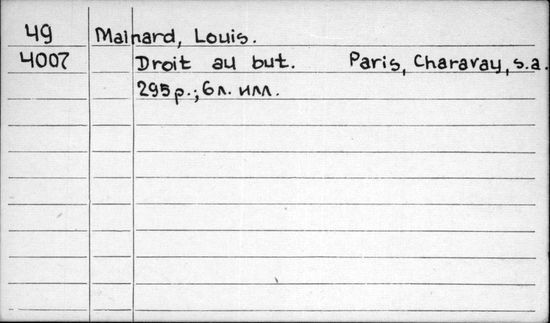 49 Mainard, Louis.
4007 Droit au but. Paris, Charavay, s.a.
295 p.; 6 л. илл.